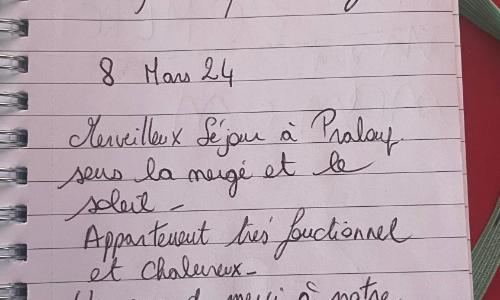 8 Mars 24
Merveilleux Séjour à Pralou
sous la neige et le
soleil -
Appartement très fonctionnel
et chaleureux -
merci à notre